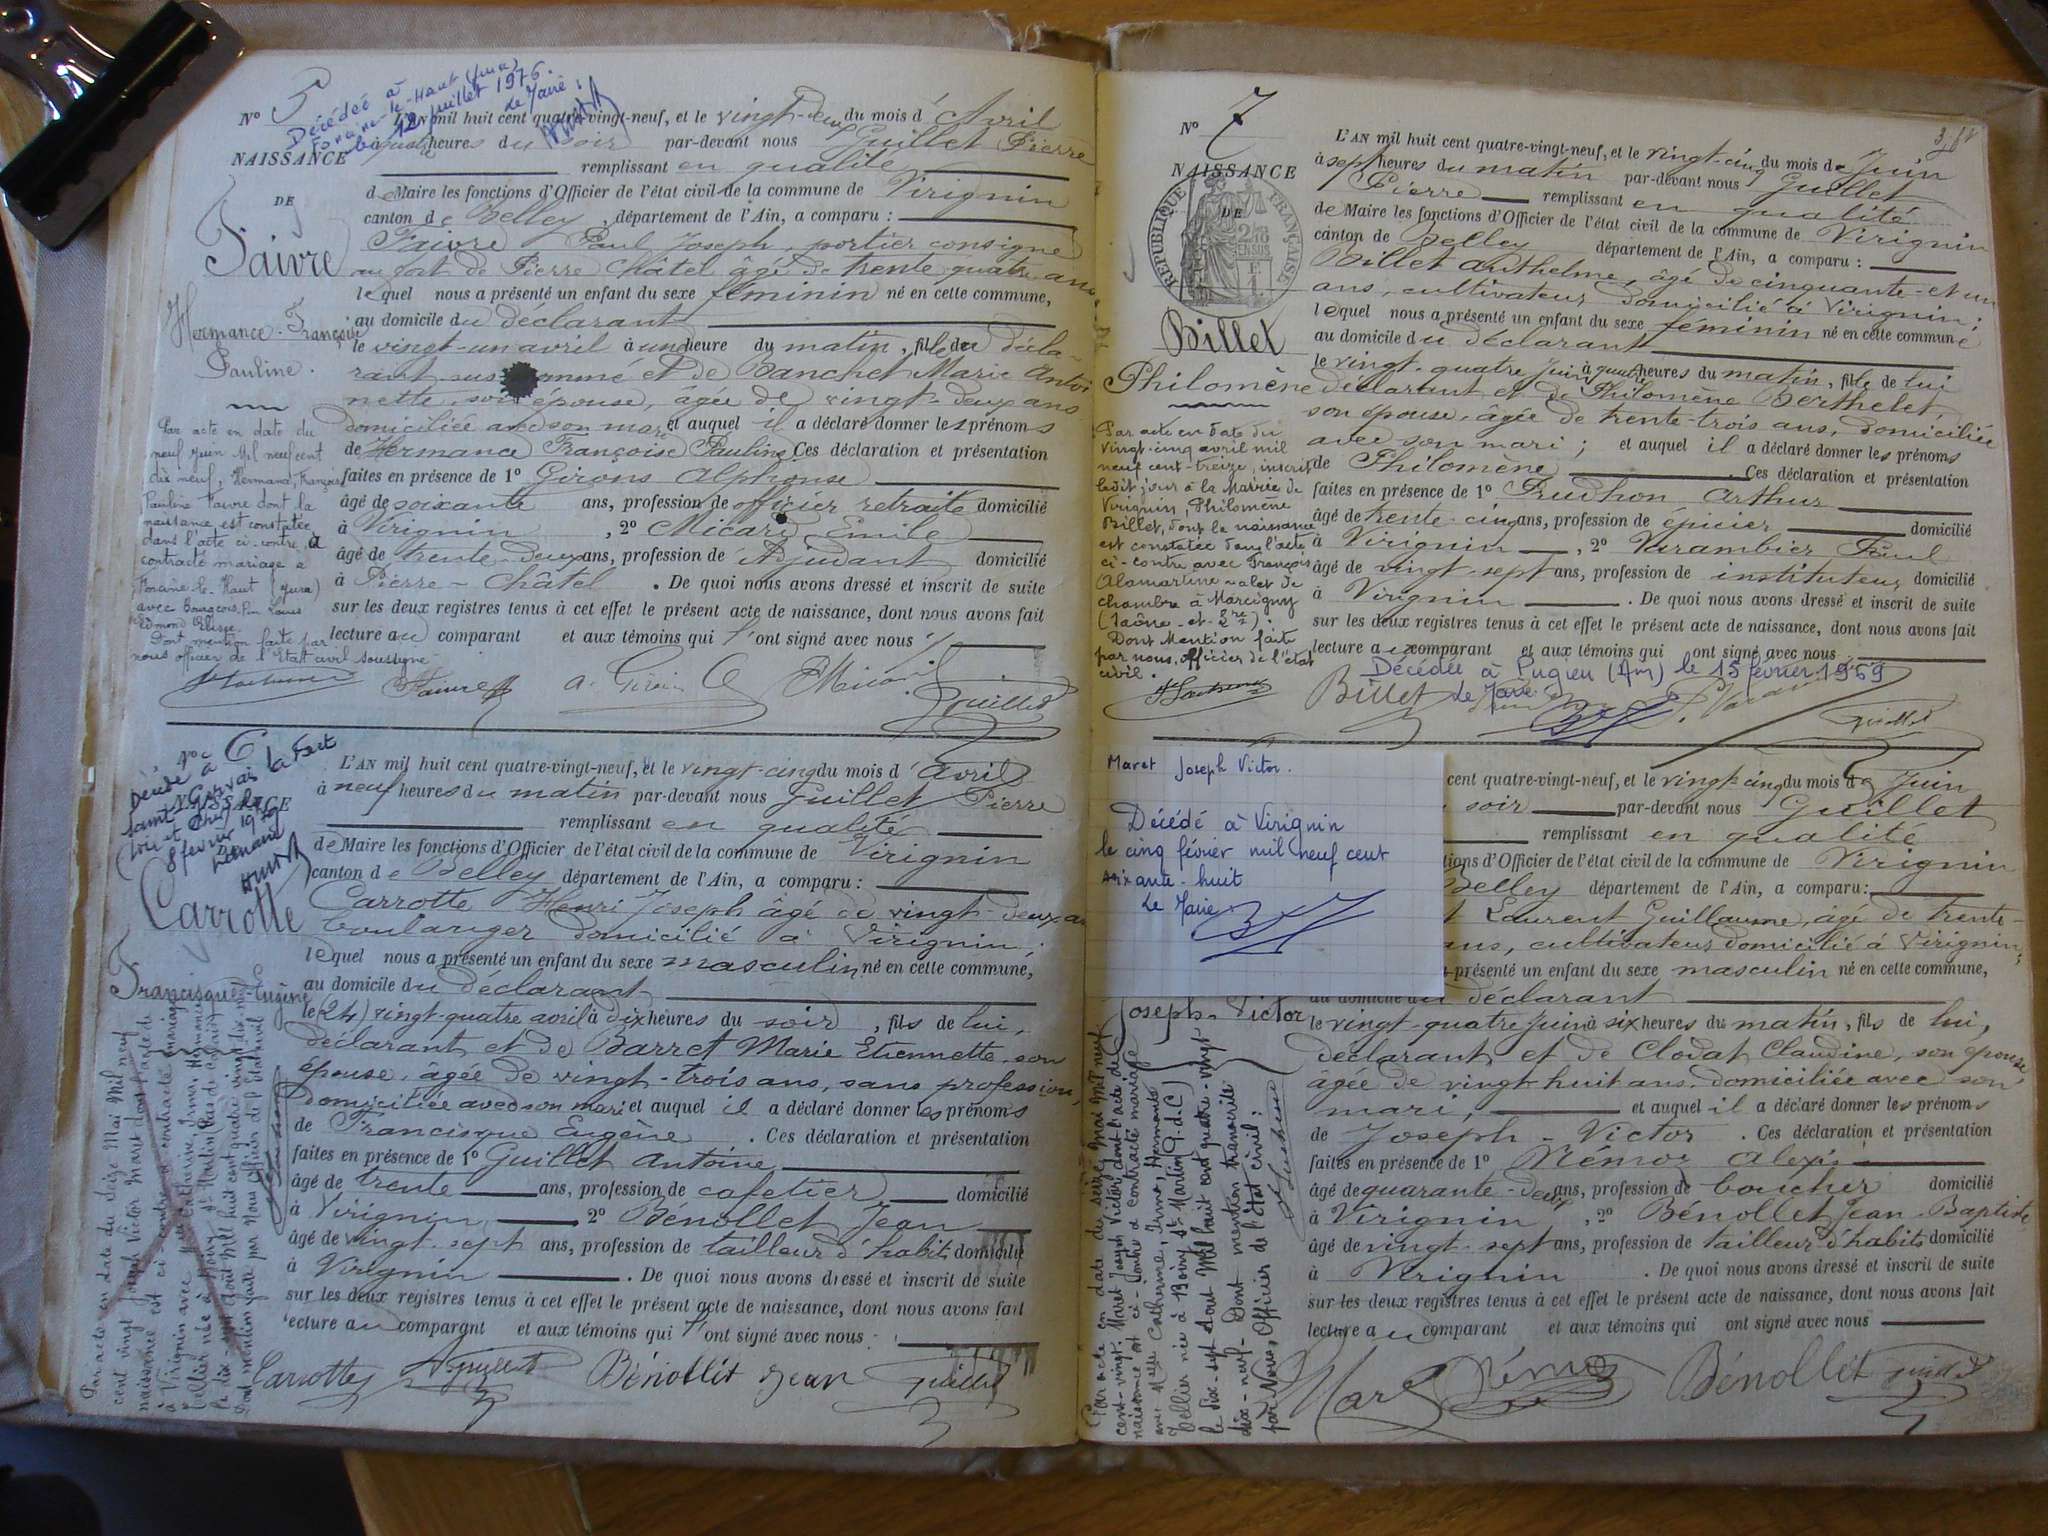 No 5
Décédée à
Foncine-le-Haut (Jura)
le 12 juillet 1976.
le Maire :
NAISSANCE
DE
Faivre
Hermance-Françoise
Pauline.
L'AN mil huit cent quatre-vingt-neuf, et le vingt-deux du mois d'Avril
à quatre heures du soir par-devant nous Guillet Pierre
remplissant en qualité
de Maire les fonctions d'Officier de l'état civil de la commune de Virignin
canton de Belley, département de l'Ain, a comparu :
Faivre Paul Joseph, portier consigne
au fort de Pierre Châtel âgé de trente quatre ans
lequel nous a présenté un enfant du sexe féminin né en cette commune,
au domicile du déclarant
le vingt-un avril à une heure du matin, fille du décla-
rant sus nommé et de Banchet Marie Antoi
nette son épouse, âgée de vingt-deux ans
domiciliée avec son mari et auquel il a déclaré donner les prénoms
de Hermance Françoise Pauline. Ces déclaration et présentation
faites en présence de 1° Girons Alphonse
âgé de soixante ans, profession de officier retraité domicilié
à Virignin, 2° Micard Emile
âgé de trente-deux ans, profession de Adjudant domicilié
à Pierre-Châtel. De quoi nous avons dressé et inscrit de suite
sur les deux registres tenus à cet effet le présent acte de naissance, dont nous avons fait
lecture au comparant et aux témoins qui l'ont signé avec nous
Par acte en date du
neuf juin mil neuf cent
dix neuf, Hermance, Françoise
Pauline Faivre dont la
naissance est constatée
dans l'acte ci-contre, a
contracté mariage à
Foncine-le-Haut (Jura)
avec Bourgeois, Louis
Edmond
Dont mention faite par
nous officier de l'Etat civil soussigné
Faivre Guillet
No 6
Décédé à
Saint Gervais la Forêt
Loir et Cher le
8 février 19
le Maire
NAISSANCE
Carrotte
Francisque-Eugène
L'AN mil huit cent quatre-vingt-neuf, et le vingt-cinq du mois d'Avril
à neuf heures du matin par-devant nous Guillet Pierre
remplissant en qualité
de Maire les fonctions d'Officier de l'état civil de la commune de Virignin
canton de Belley département de l'Ain, a comparu :
Carrotte Henri Joseph âgé de vingt-deux ans
boulanger domicilié à Virignin ;
lequel nous a présenté un enfant du sexe masculin né en cette commune,
au domicile du déclarant
le (24) vingt-quatre avril à dix heures du soir, fils de lui,
déclarant et de Barret Marie Etiennette, son
épouse, âgée de vingt-trois ans, sans profession,
domiciliée avec son mari et auquel il a déclaré donner les prénoms
de Francisque Eugène. Ces déclaration et présentation
faites en présence de 1° Guillet Antoine
âgé de trente ans, profession de cafetier, domicilié
à Virignin, 2° Bénollet Jean
âgé de vingt-sept ans, profession de tailleur d'habits domicilié
à Virignin. De quoi nous avons dressé et inscrit de suite
sur les deux registres tenus à cet effet le présent acte de naissance, dont nous avons fait
lecture au comparant et aux témoins qui l'ont signé avec nous :
Par acte en date du seize Mai Mil neuf
cent vingt Joseph Victor Maret dont l'acte de
naissance est ci-contre a contracté mariage
à Virignin avec Catherine, Irma, Hermance
Tellier née à Boiry St-Martin Pas de Calais
le dix-sept Août Mil huit cent quatre vingt dix neuf
Dont mention faite par Nous Officier de l'Etat civil
Carrotte A Guillet Bénollet Jean Guillet
No 7
NAISSANCE
DE
RÉPUBLIQUE FRANÇAISE
Billet
Philomène
L'AN mil huit cent quatre-vingt-neuf, et le vingt-cinq du mois de Juin
à sept heures du matin par-devant nous Guillet
Pierre remplissant en qualité
de Maire les fonctions d'Officier de l'état civil de la commune de Virignin
canton de Belley département de l'Ain, a comparu :
Billet Anthelme, âgé de cinquante-et un
ans, cultivateur domicilié à Virignin ;
lequel nous a présenté un enfant du sexe féminin né en cette commune
au domicile du déclarant
le vingt-quatre Juin à quatre heures du matin, fille de lui
déclarant et de Philomène Berthelet,
son épouse, âgée de trente-trois ans, domiciliée
avec son mari ; et auquel il a déclaré donner les prénoms
de Philomène. Ces déclaration et présentation
faites en présence de 1° Prudhon Arthur
âgé de trente-cinq ans, profession de épicier domicilié
à Virignin, 2° Varambier Paul
âgé de vingt-sept ans, profession de instituteur domicilié
à Virignin. De quoi nous avons dressé et inscrit de suite
sur les deux registres tenus à cet effet le présent acte de naissance, dont nous avons fait
lecture au comparant et aux témoins qui ont signé avec nous
Par acte en date du
vingt-cinq avril mil
neuf cent-treize, inscrit
ledit jour à la Mairie de
Virignin, Philomène
Billet, dont la naissance
est constatée dans l'acte
ci-contre avec François
Alamartine valet de
chambre à Marcigny
(Saône-et-Loire).
Dont Mention faite
par nous, officier de l'état
civil.
Décédée à Pugieu (Ain) le 15 février 1969
Le Maire
Billet Guillet
Maret Joseph Victor.
Décédé à Virignin
le cinq février mil neuf cent
soixante-huit
Le Maire
Joseph-Victor
cent quatre-vingt-neuf, et le vingt-cinq du mois de Juin
soir par-devant nous Guillet
remplissant en qualité
tions d'Officier de l'état civil de la commune de Virignin
Belley département de l'Ain, a comparu :
t Laurent Guillaume, âgé de trente-
ans, cultivateur domicilié à Virignin ;
présenté un enfant du sexe masculin né en cette commune,
au domicile du déclarant
le vingt-quatre Juin à six heures du matin, fils de lui,
déclarant et de Clodat Claudine, son épouse
âgée de vingt-huit ans, domiciliée avec son
mari, et auquel il a déclaré donner les prénoms
de Joseph-Victor. Ces déclaration et présentation
faites en présence de 1° Némoz Alexis
âgé de quarante-deux ans, profession de boucher domicilié
à Virignin, 2° Bénollet Jean-Baptiste
âgé de vingt-sept ans, profession de tailleur d'habits domicilié
à Virignin. De quoi nous avons dressé et inscrit de suite
sur les deux registres tenus à cet effet le présent acte de naissance, dont nous avons fait
lecture au comparant et aux témoins qui ont signé avec nous
Par acte en date du seize Mai Mil neuf
cent-vingt. Maret Joseph Victor dont l'acte de
naissance est ci-contre a contracté mariage
avec Melle Catherine, Irma, Hermance
Tellier née à Boiry St-Martin (P.d.C)
le dix-sept Aout Mil huit cent quatre-vingt
dix-neuf. Dont mention transcrite
par Nous, Officier de l'état civil :
Maret Némoz Bénollet Guillet